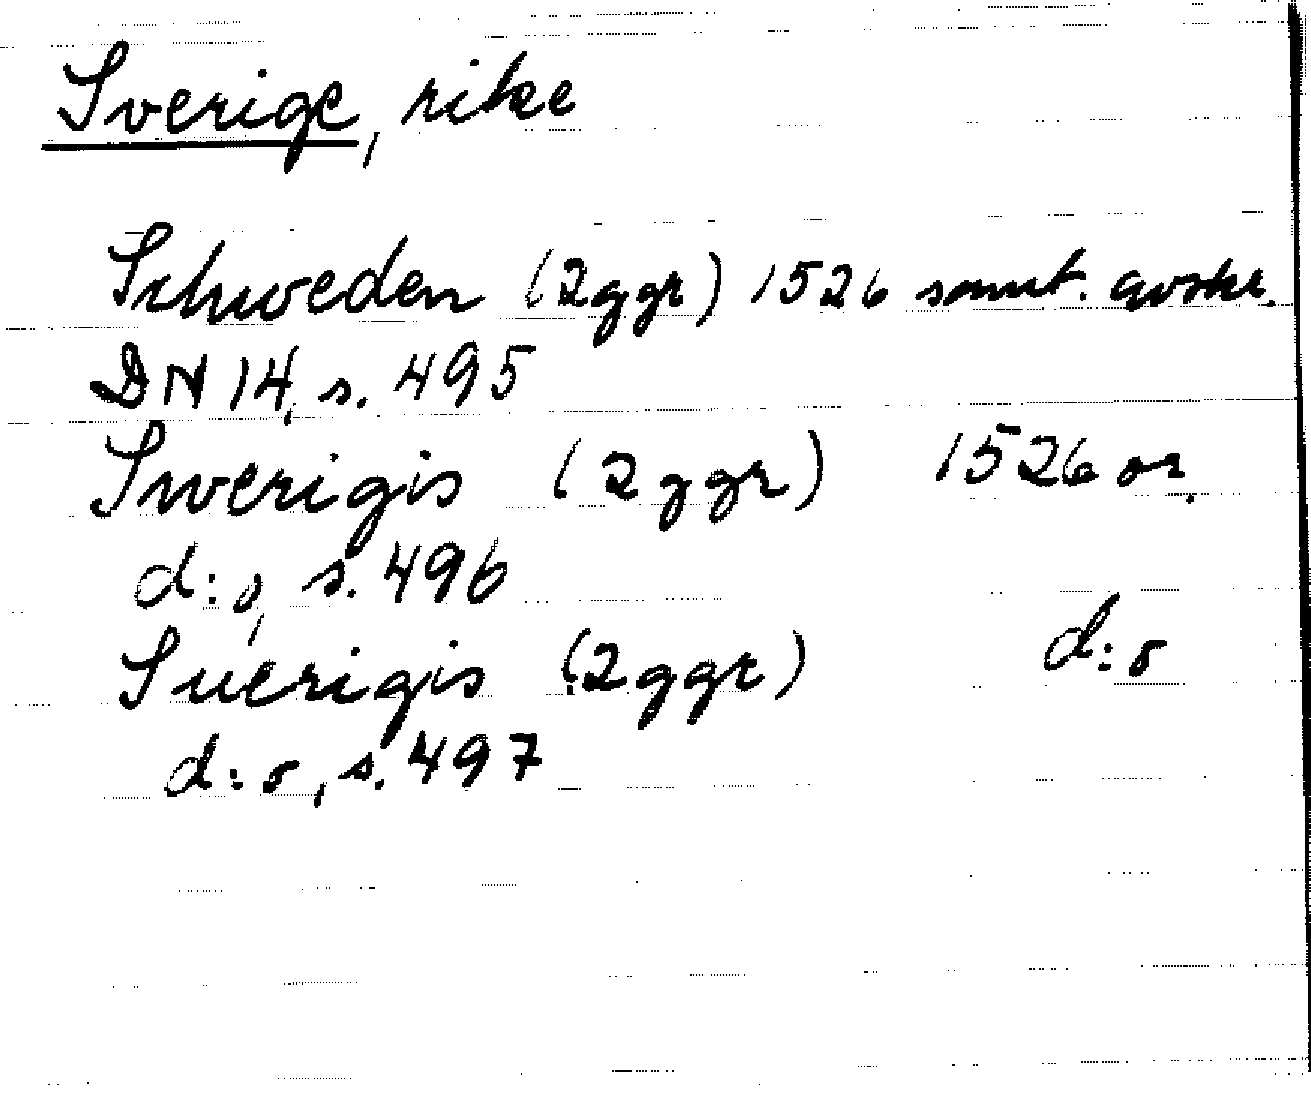 Sverige, rike
Schweden (2ggr) 1526 samt. avskr.
DN 14, s. 495
Swerigis (2ggr) 1526 or.
d:o, s. 496
Suerigis (2ggr) d:o
d:o, s. 497